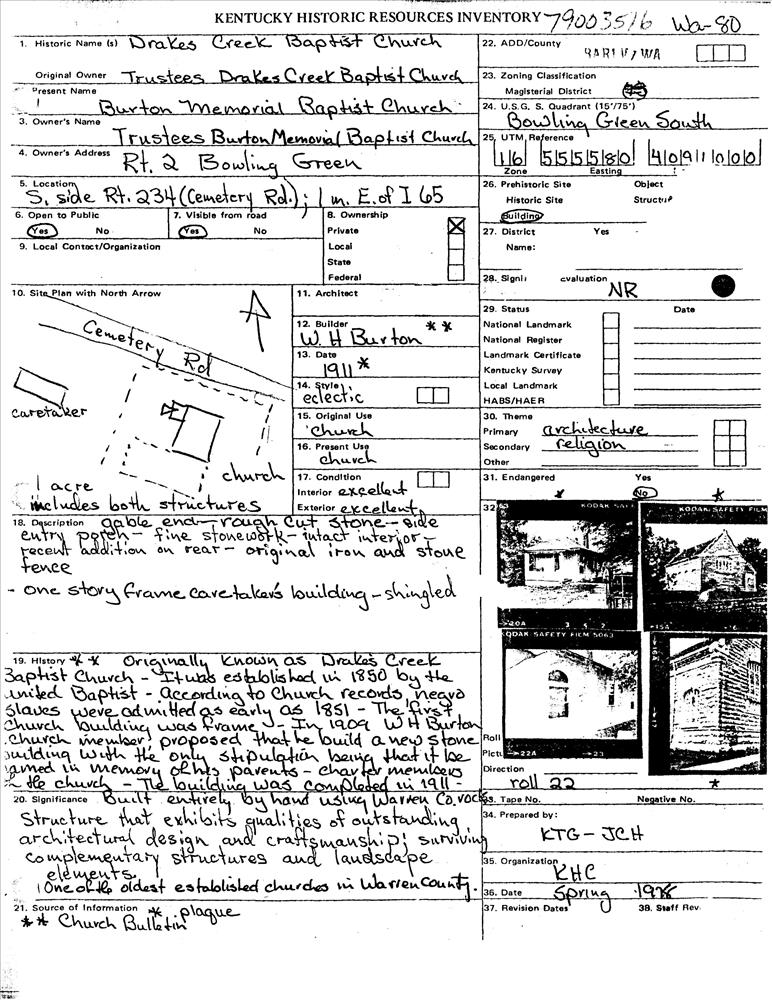 KENTUCKY HISTORIC RESOURCES INVENTORY 79003516 Wa-80
1. Historic Name (s) Drakes Creek Baptist Church
Original Owner Trustees Drakes Creek Baptist Church
Present Name
Burton Memorial Baptist Church
3. Owner's Name
Trustees Burton Memorial Baptist Church
4. Owner's Address Rt. 2 Bowling Green
5. Location
S. side Rt. 234 (Cemetery Rd.); 1 m. E. of I 65
6. Open to Public
Yes No
7. Visible from road
Yes No
8. Ownership
Private
Local
State
Federal
9. Local Contact/Organization
10. Site Plan with North Arrow
Cemetery Rd
caretaker
church
1 acre
includes both structures
11. Architect
12. Builder **
W. H Burton
13. Date
1911*
14. Style
eclectic
15. Original Use
church
16. Present Use
church
17. Condition
Interior excellent
Exterior excellent
18. Description gable end - rough cut stone - side
entry porch - fine stonework - intact interior -
recent addition on rear - original iron and stone
fence
- one story frame caretaker's building - shingled
19. History ** Originally known as Drake's Creek
Baptist Church - It was established in 1850 by the
united Baptist - according to Church records, negro
slaves were admitted as early as 1851 - The first
church building was frame - In 1909 W H Burton
church member, proposed that he build a new stone
building with the only stipulation being that it be
named in memory of his parents - charter members
in the church - The building was completed in 1911 -
20. Significance Built entirely by hand using Warren Co. rocks
Structure that exhibits qualities of outstanding
architectural design and craftsmanship; surviving
complementary structures and landscape
elements.
One of the oldest established churches in Warren County.
21. Source of Information * plaque
** Church Bulletin
22. ADD/County
WA
23. Zoning Classification
Magisterial District
24. U.S.G. S. Quadrant (15'/75')
Bowling Green South
25. UTM Reference
16 555580 4091000
Zone Easting
26. Prehistoric Site Object
Historic Site
Building
27. District Yes
Name:
28. evaluation
NR
29. Status Date
National Landmark
National Register
Landmark Certificate
Kentucky Survey
Local Landmark
HABS/HAER
30. Theme
Primary architecture
Secondary religion
Other
31. Endangered Yes
No
* *
32
KODAK SAFETY FILM
20A
15A
KODAK SAFETY FILM 5063
22A 23
Roll
Direction
roll 22 *
33. Tape No. Negative No.
34. Prepared by:
KTG - JCH
35. Organization
KHC
36. Date Spring 1978
37. Revision Dates 38. Staff Rev.